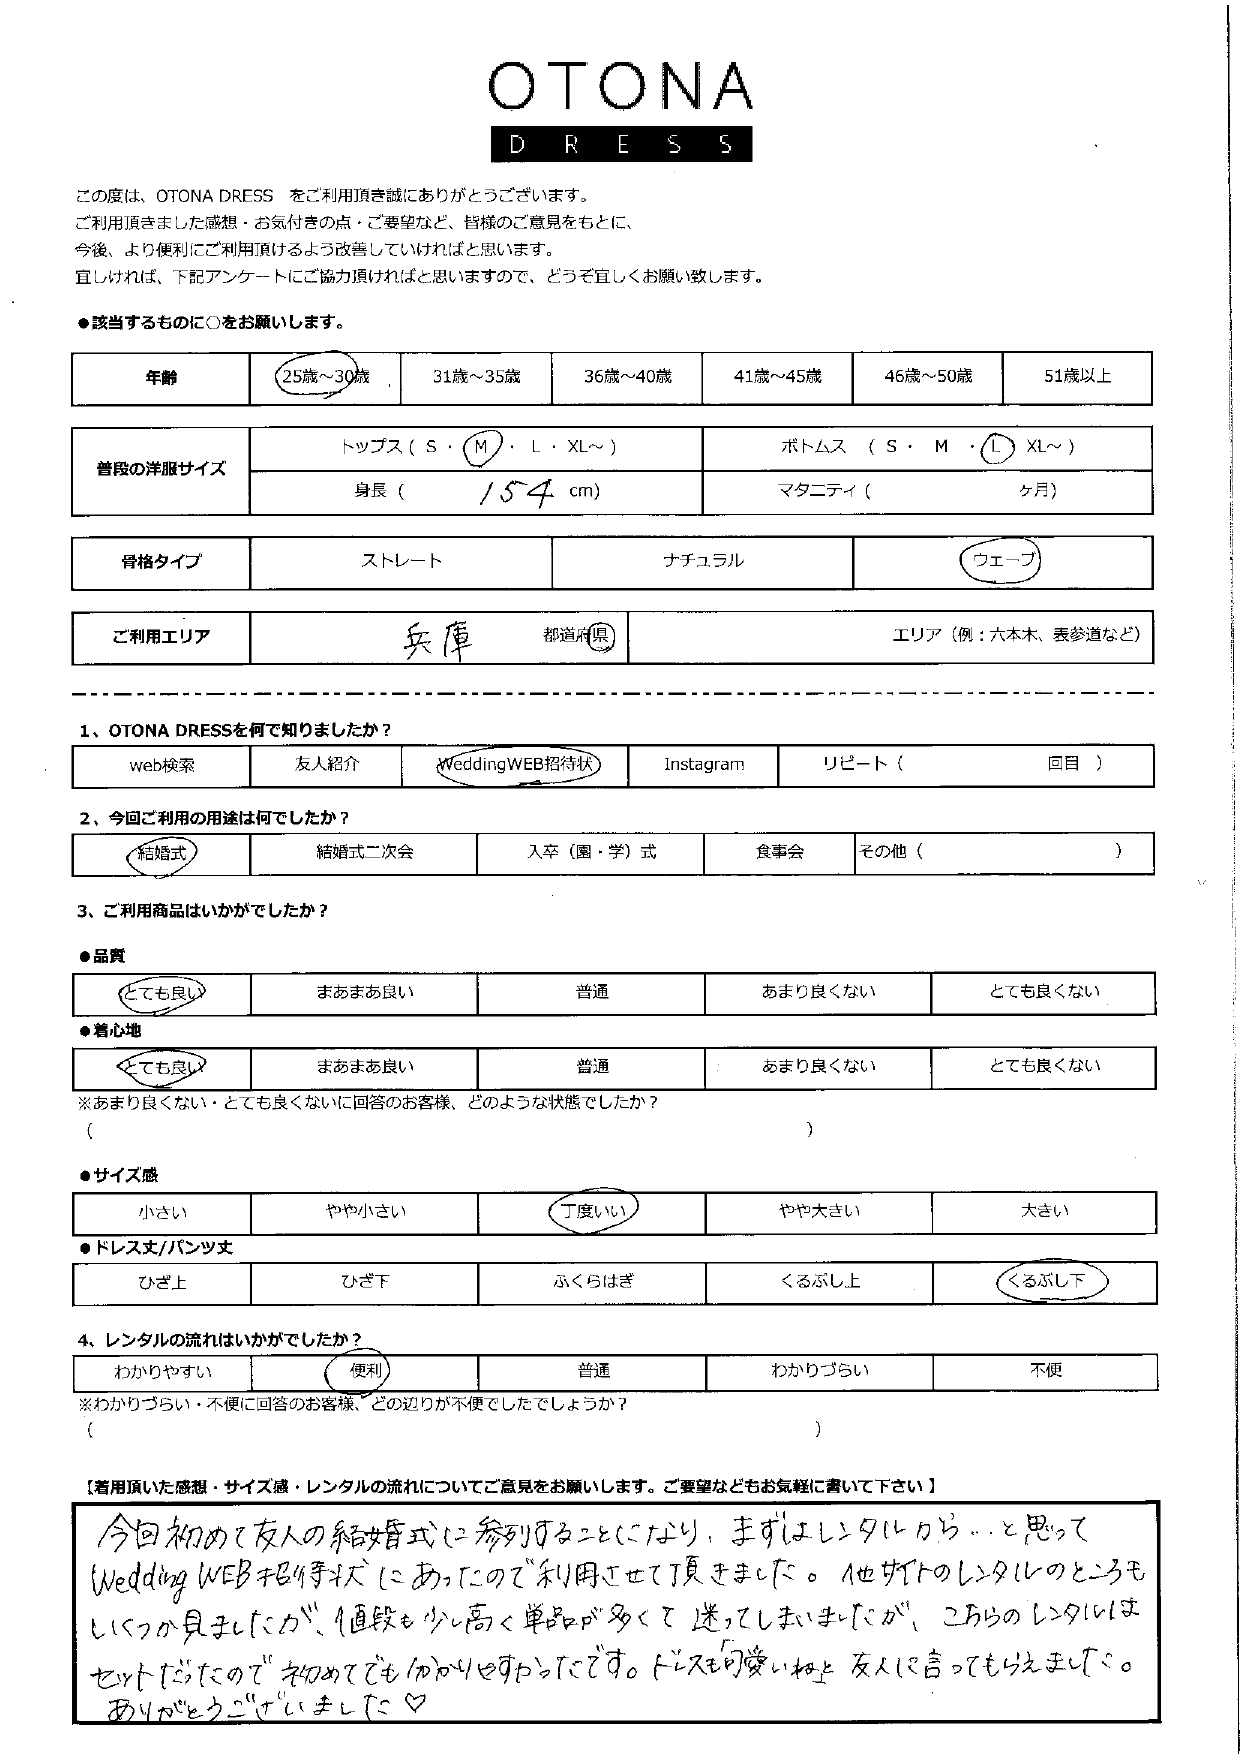 OTONA
DRESS
この度は、OTONA DRESS をご利用頂き誠にありがとうございます。
ご利用頂きました感想・お気付きの点・ご要望など、皆様のご意見をもとに、
今後、より便利にご利用頂けるよう改善していければと思います。
宜しければ、下記アンケートにご協力頂ければと思いますので、どうぞ宜しくお願い致します。
●該当するものに○をお願いします。
年齢 25歳～30歳 31歳～35歳 36歳～40歳 41歳～45歳 46歳～50歳 51歳以上
普段の洋服サイズ トップス ( S ・ M ・ L ・ XL～ ) ボトムス ( S ・ M ・ L XL～ )
身長 ( 154 cm) マタニティ ( ヶ月)
骨格タイプ ストレート ナチュラル ウェーブ
ご利用エリア 兵庫 都道府県 エリア（例：六本木、表参道など）
1、OTONA DRESSを何で知りましたか？
web検索 友人紹介 WeddingWEB招待状 Instagram リピート（ 回目 ）
2、今回ご利用の用途は何でしたか？
結婚式 結婚式二次会 入卒（園・学）式 食事会 その他（ ）
3、ご利用商品はいかがでしたか？
●品質
とても良い まあまあ良い 普通 あまり良くない とても良くない
●着心地
とても良い まあまあ良い 普通 あまり良くない とても良くない
※あまり良くない・とても良くないに回答のお客様、どのような状態でしたか？
( )
●サイズ感
小さい やや小さい 丁度いい やや大きい 大きい
●ドレス丈/パンツ丈
ひざ上 ひざ下 ふくらはぎ くるぶし上 くるぶし下
4、レンタルの流れはいかがでしたか？
わかりやすい 便利 普通 わかりづらい 不便
※わかりづらい・不便に回答のお客様、どの辺りが不便でしたでしょうか？
( )
【着用頂いた感想・サイズ感・レンタルの流れについてご意見をお願いします。ご要望などもお気軽に書いて下さい 】
今回初めて友人の結婚式に参列することになり、まずはレンタルから…と思って
Wedding WEB招待状にあったので利用させて頂きました。他サイトのレンタルのところも
いくつか見ましたが、値段も少し高く単品が多くて迷ってしまいましたが、こちらのレンタルは
セットだったので初めてでも分かりやすかったです。ドレスも「可愛いね」と友人に言ってもらえました。
ありがとうございました♡